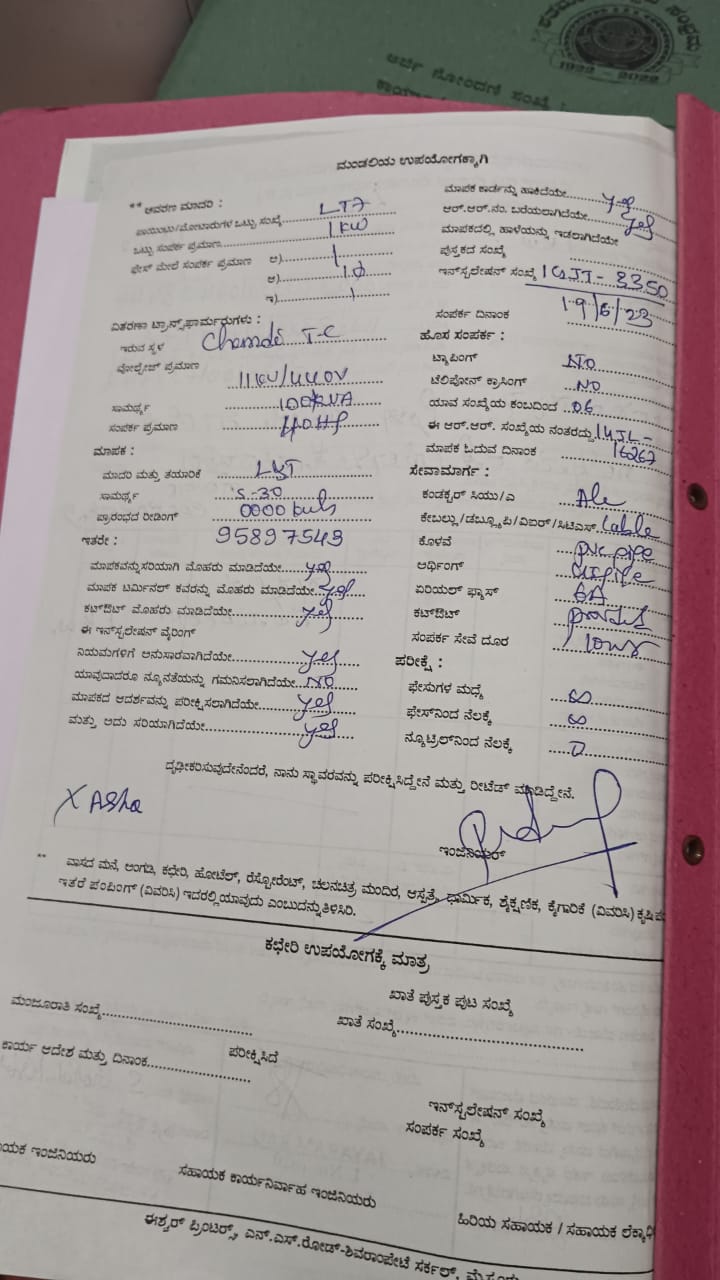 1922 - 2022
ಅರ್ಜಿ ನೋಂದಣಿ ಸಂಖ್ಯೆ :
ಮಂಡಲಿಯ ಉಪಯೋಗಕ್ಕಾಗಿ
** ಆವರಣ ಮಾದರಿ :
ಪಾಯಿಂಟು/ಮೋಟಾರುಗಳ ಒಟ್ಟು ಸಂಖ್ಯೆ LT7
ಒಟ್ಟು ಸಂಪರ್ಕ ಪ್ರಮಾಣ 1KW
ಫೇಸ್ ಮೇಲೆ ಸಂಪರ್ಕ ಪ್ರಮಾಣ ಅ) 1
ಆ) 1ϕ
ಇ) 1
ವಿತರಣಾ ಟ್ರಾನ್ಸ್‌ಫಾರ್ಮರುಗಳು :
ಇರುವ ಸ್ಥಳ T-C
ವೋಲ್ಟೇಜ್ ಪ್ರಮಾಣ
11KV/440V
ಸಾಮರ್ಥ್ಯ 100KVA
ಸಂಪರ್ಕ ಪ್ರಮಾಣ
ಮಾಪಕ :
ಮಾದರಿ ಮತ್ತು ತಯಾರಿಕೆ L&T
ಸಾಮರ್ಥ್ಯ 5-30
ಪ್ರಾರಂಭದ ರೀಡಿಂಗ್ 0000
ಇತರೇ : 95897543
ಮಾಪಕವನ್ನುಸರಿಯಾಗಿ ಮೊಹರು ಮಾಡಿದೆಯೇ yes
ಮಾಪಕ ಟರ್ಮಿನಲ್ ಕವರನ್ನು ಮೊಹರು ಮಾಡಿದೆಯೇ yes
ಕಟ್‌ಔಟ್ ಮೊಹರು ಮಾಡಿದೆಯೇ yes
ಈ ಇನ್‌ಸ್ಟಲೇಷನ್ ವೈರಿಂಗ್
ನಿಯಮಗಳಿಗೆ ಅನುಸಾರವಾಗಿದೆಯೇ yes
ಯಾವುದಾದರೂ ನ್ಯೂನತೆಯನ್ನು ಗಮನಿಸಲಾಗಿದೆಯೇ NO
ಮಾಪಕದ ಆದರ್ಶವನ್ನು ಪರೀಕ್ಷಿಸಲಾಗಿದೆಯೇ yes
ಮತ್ತು ಅದು ಸರಿಯಾಗಿದೆಯೇ yes
ಮಾಪಕ ಕಾರ್ಡನ್ನು ಹಾಕಿದೆಯೇ yes
ಆರ್.ಆರ್.ನಂ. ಬರೆಯಲಾಗಿದೆಯೇ yes
ಮಾಪಕದಲ್ಲಿ ಹಾಳೆಯನ್ನು ಇಡಲಾಗಿದೆಯೇ
ಪುಸ್ತಕದ ಸಂಖ್ಯೆ
ಇನ್‌ಸ್ಟಲೇಷನ್ ಸಂಖ್ಯೆ
ಸಂಪರ್ಕ ದಿನಾಂಕ 19/6/23
ಹೊಸ ಸಂಪರ್ಕ :
ಟ್ಯಾಪಿಂಗ್ NO
ಟೆಲಿಫೋನ್ ಕ್ರಾಸಿಂಗ್ NO
ಯಾವ ಸಂಖ್ಯೆಯ ಕಂಬದಿಂದ 06
ಈ ಆರ್.ಆರ್. ಸಂಖ್ಯೆಯ ನಂತರದ್ದು
ಮಾಪಕ ಓದುವ ದಿನಾಂಕ
ಸೇವಾಮಾರ್ಗ :
ಕಂಡಕ್ಟರ್ ಸಿಯು/ಎ
ಕೇಬಲ್ಲು/ಡಬ್ಲ್ಯೂಪಿ/ವಿಐರ್/ಸಿಟಿಎಸ್ Cable
ಕೊಳವೆ pvc pipe
ಆರ್ಥಿಂಗ್ GI pipe
ಏರಿಯಲ್ ಫ್ಯೂಸ್
ಕಟ್‌ಔಟ್
ಸಂಪರ್ಕ ಸೇವೆ ದೂರ
ಪರೀಕ್ಷೆ :
ಫೇಸುಗಳ ಮಧ್ಯೆ ∞
ಫೇಸ್‌ನಿಂದ ನೆಲಕ್ಕೆ ∞
ನ್ಯೂಟ್ರಲ್‌ನಿಂದ ನೆಲಕ್ಕೆ 0
ದೃಢೀಕರಿಸುವುದೇನೆಂದರೆ, ನಾನು ಸ್ಥಾವರವನ್ನು ಪರೀಕ್ಷಿಸಿದ್ದೇನೆ ಮತ್ತು ರೀಟೆಡ್ ಮಾಡಿದ್ದೇನೆ.
X Asha
ಇಂಜಿನಿಯರ್
** ವಾಸದ ಮನೆ, ಅಂಗಡಿ, ಕಛೇರಿ, ಹೋಟೆಲ್, ರೆಸ್ಟೋರೆಂಟ್, ಚಲನಚಿತ್ರ ಮಂದಿರ, ಆಸ್ಪತ್ರೆ, ಧಾರ್ಮಿಕ, ಶೈಕ್ಷಣಿಕ, ಕೈಗಾರಿಕೆ (ವಿವರಿಸಿ)
ಇತರೆ ಪಂಪಿಂಗ್ (ವಿವರಿಸಿ) ಇದರಲ್ಲಿಯಾವುದು ಎಂಬುದನ್ನುತಿಳಿಸಿರಿ.
ಕಛೇರಿ ಉಪಯೋಗಕ್ಕೆ ಮಾತ್ರ
ಖಾತೆ ಪುಸ್ತಕ ಪುಟ ಸಂಖ್ಯೆ
ಮಂಜೂರಾತಿ ಸಂಖ್ಯೆ
ಖಾತೆ ಸಂಖ್ಯೆ
ಕಾರ್ಯ ಆದೇಶ ಮತ್ತು ದಿನಾಂಕ
ಪರೀಕ್ಷಿಸಿದೆ
ಇನ್‌ಸ್ಟಲೇಷನ್ ಸಂಖ್ಯೆ
ಸಂಪರ್ಕ ಸಂಖ್ಯೆ
ಇಂಜಿನಿಯರು
ಸಹಾಯಕ ಕಾರ್ಯನಿರ್ವಾಹ ಇಂಜಿನಿಯರು
ಹಿರಿಯ ಸಹಾಯಕ / ಸಹಾಯಕ
ಈಶ್ವರ್ ಪ್ರಿಂಟರ್ಸ್, ಎನ್.ಎಸ್.ರೋಡ್-ಶಿವರಾಂಪೇಟೆ ಸರ್ಕಲ್,